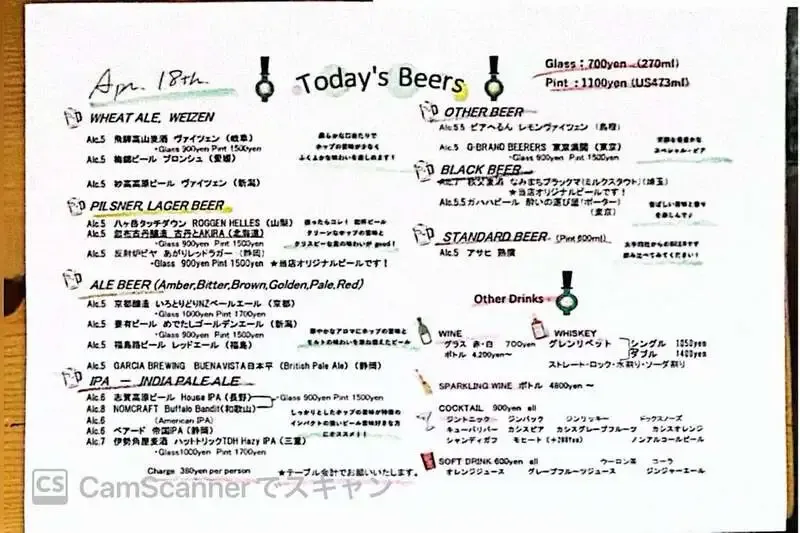 Apr. 18th.
Today's Beers
Glass : 700yen (270ml)
Pint : 1100yen (US473ml)
WHEAT ALE, WEIZEN
Alc.5 飛騨高山麦酒 ヴァイツェン (岐阜)
・Glass 900yen Pint 1500yen
Alc.5 梅錦ビール ブロンシュ (愛媛)
柔らかな口当たりで
ホップの苦味が少なく
ふくよかな味わいを楽しめます!
Alc.5 妙高高原ビール ヴァイツェン (新潟)
PILSNER, LAGER BEER
Alc.5 八ヶ岳タッチダウン ROGGEN HELLES (山梨)
Alc.5 忽布古丹醸造 古丹とAKIRA (北海道)
・Glass 900yen Pint 1500yen
Alc.5 反射炉ビヤ あがりレッドラガー (静岡)
・Glass 900yen Pint 1500yen ★当店オリジナルビールです!
迷ったらコレ!
クリーンなホップの苦味と
クリスピーな麦の味わいが good!
ALE BEER (Amber,Bitter,Brown,Golden,Pale,Red)
Alc.5 京都醸造 いろとりどりNZペールエール (京都)
・Glass 1000yen Pint 1700yen
Alc.5 妻有ビール めでたしゴールデンエール (新潟)
・Glass 900yen Pint 1500yen
Alc.5 福島路ビール レッドエール (福島)
華やかなアロマにホップの苦味と
モルトの味わいを兼ね備えたビール
Alc.5 GARCIA BREWING BUENAVISTA日本平 (British Pale Ale) (静岡)
IPA — INDIA PALE ALE
Alc.6 志賀高原ビール House IPA (長野)
Alc.8 NOMCRAFT Buffalo Bandit(和歌山)
・Glass 900yen Pint 1500yen
Alc.6 (American IPA)
Alc.6 ベアード 帝国IPA (静岡)
Alc.7 伊勢角屋麦酒 ハットトリックTDH Hazy IPA (三重)
・Glass1000yen Pint 1700yen
しっかりとしたホップの苦味が特徴の
インパクトの強いビール 苦味好きな方
にオススメ!
Charge 380yen per person
★テーブル会計でお願いいたします。
OTHER BEER
Alc.5.5 ビアへるん レモンヴァイツェン (島根)
Alc.5 G-BRAND BEERERS 東京満開 (東京)
・Glass 900yen Pint 1500yen
スペシャル・ビア
BLACK BEER
Alc.7 秩父麦酒 なみまちブラックマ(ミルクスタウト) (埼玉)
★当店オリジナルビールです!
Alc.5.5 ガハハビール 酔いの運び屋「ポーター」
(東京)
香ばしい苦味と香り
を楽しんで♪
STANDARD BEER (Pint 600ml)
Alc.5 アサヒ 熟撰
大手四社からのBEERです
飲み比べてみてください!
Other Drinks
WINE
グラス 赤・白 700yen
ボトル 4,200yen～
WHISKEY
グレンリベット シングル 1050yen
ダブル 1400yen
ストレート・ロック・水割り・ソーダ割り
SPARKLING WINE ボトル 4800yen ～
COCKTAIL 900yen all
ジントニック ジンバック ジンリッキー ドッグスノーズ
キューバリバー カシスビア カシスグレープフルーツ カシスオレンジ
シャンディガフ モヒート (+200yen) ノンアルコールビール
SOFT DRINK 600yen all ウーロン茶 コーラ
オレンジジュース グレープフルーツジュース ジンジャーエール
CS CamScannerでスキャン